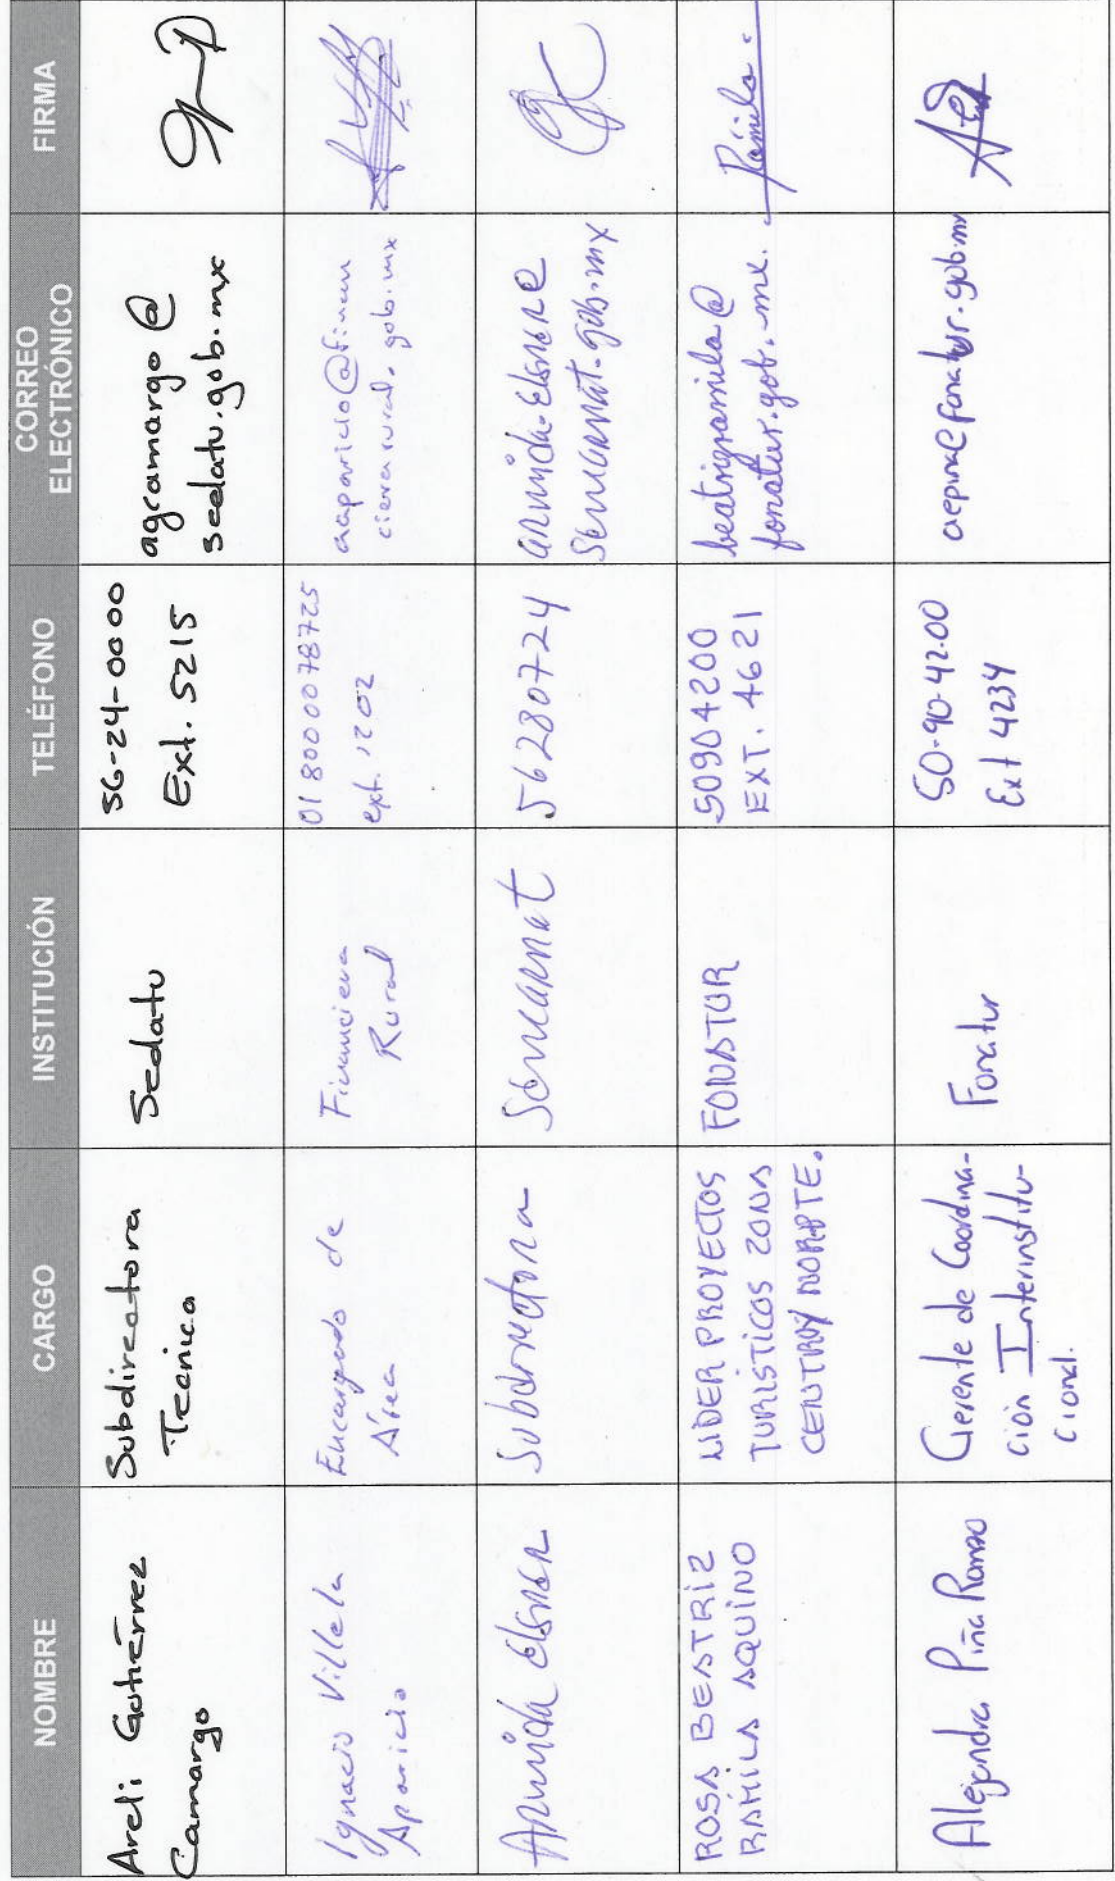 NOMBRE
CARGO
INSTITUCIÓN
TELÉFONO
CORREO
ELECTRÓNICO
FIRMA
Areli Gutiérrez
Camargo
Subdirectora
Tecnica
Sedatu
56-24-0000
Ext. 5215
agcamargo@
sedatu.gob.mx
Ignacio Villela
Aparicio
Encargado de
Área
Financiera
Rural
01 8000078725
ext. 1202
aaparicio@finan
cierarural.gob.mx
Armida Elsner
Subdirectora
Semarnat
56280724
armida.elsner@
semarnat.gob.mx
ROSA BEATRIZ
RAMILA AQUINO
LIDER PROYECTOS
TURISTICOS ZONA
CENTRO Y NORTE.
FONATUR
50904200
EXT. 4621
beatrizramila@
fonatur.gob.mx.
Rámila
Alejandra Piña Romo
Gerente de Coordina-
ción Interinstitu-
cional.
Fonatur
50-90-42-00
Ext 4234
@fonatur.gob.mx